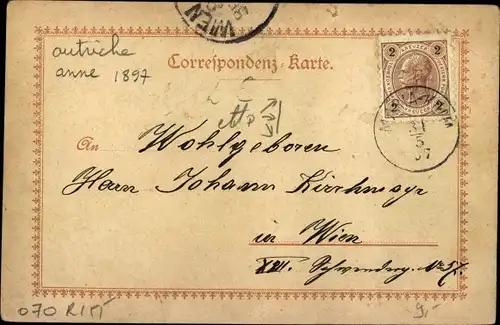 WIEN
autriche
anne 1897
Correspondenz-Karte.
2 KREUZER 2
2 2
31
5
97
An Wohlgeboren
Herrn Johann Kirchmayr
in Wien
XIII. No 57.
070 RITT
9,-